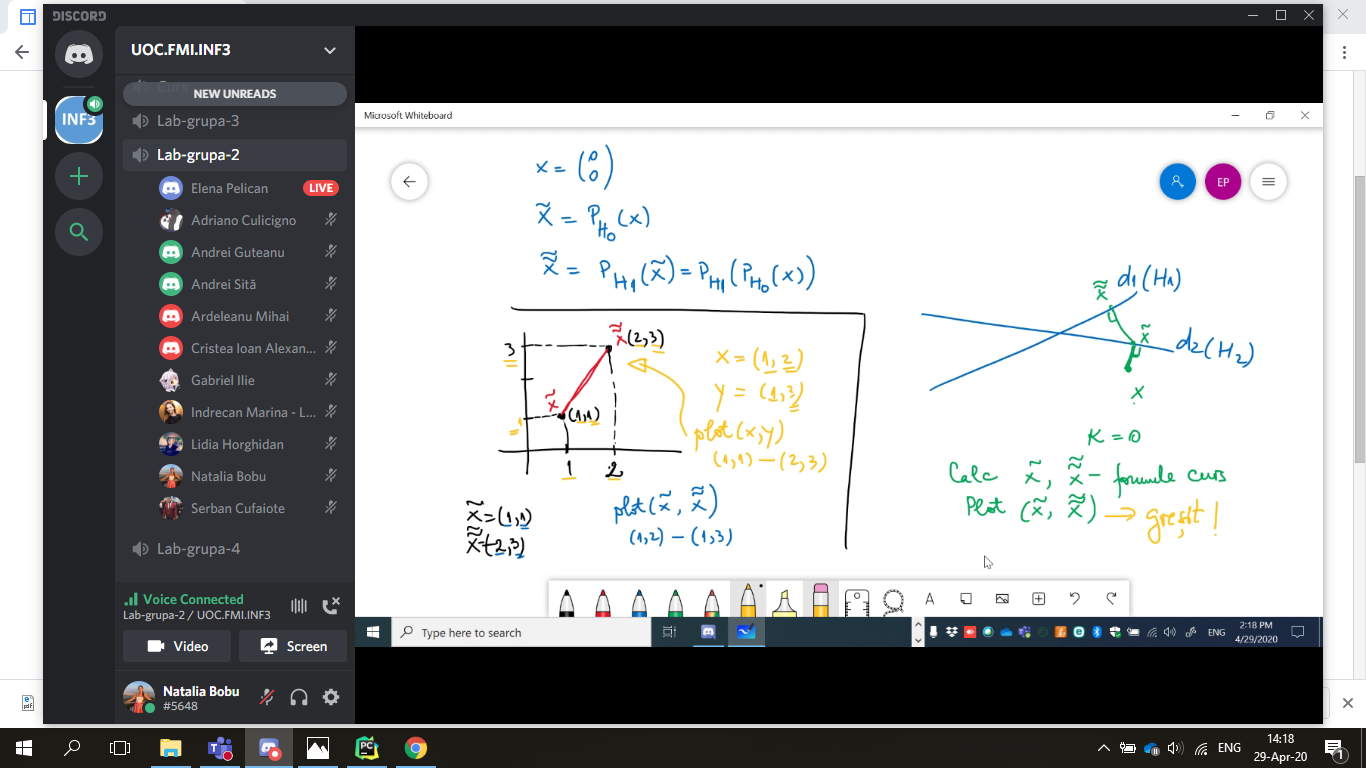 DISCORD
UOC.FMI.INF3
NEW UNREADS
INF3
Lab-grupa-3
Lab-grupa-2
Elena Pelican LIVE
Adriano Culicigno
Andrei Guteanu
Andrei Sită
Ardeleanu Mihai
Cristea Ioan Alexan...
Gabriel Ilie
Indrecan Marina - L...
Lidia Horghidan
Natalia Bobu
Serban Cufaiote
Lab-grupa-4
Voice Connected
Lab-grupa-2 / UOC.FMI.INF3
Video
Screen
Natalia Bobu
#5648
Microsoft Whiteboard
EP
x = (0 0)
x̃ = P_H₀(x)
x̃̃ = P_H₁(x̃) = P_H₁(P_H₀(x))
3
x̃̃ (2,3)
x̃ (1,1)
1
1 2
x = (1, 2)
y = (1, 3)
plot(x,y)
(1,1) — (2,3)
x̃ = (1,1)
x̃̃ = (2,3)
plot(x̃, x̃̃)
(1,2) — (1,3)
x̃̃ d1(H1)
x̃ d2(H2)
x
K = 0
Calc x̃, x̃̃ – formule curs
Plot (x̃, x̃̃) → greșit!
A
Type here to search
ENG
2:18 PM
4/29/2020
ENG
14:18
29-Apr-20
1